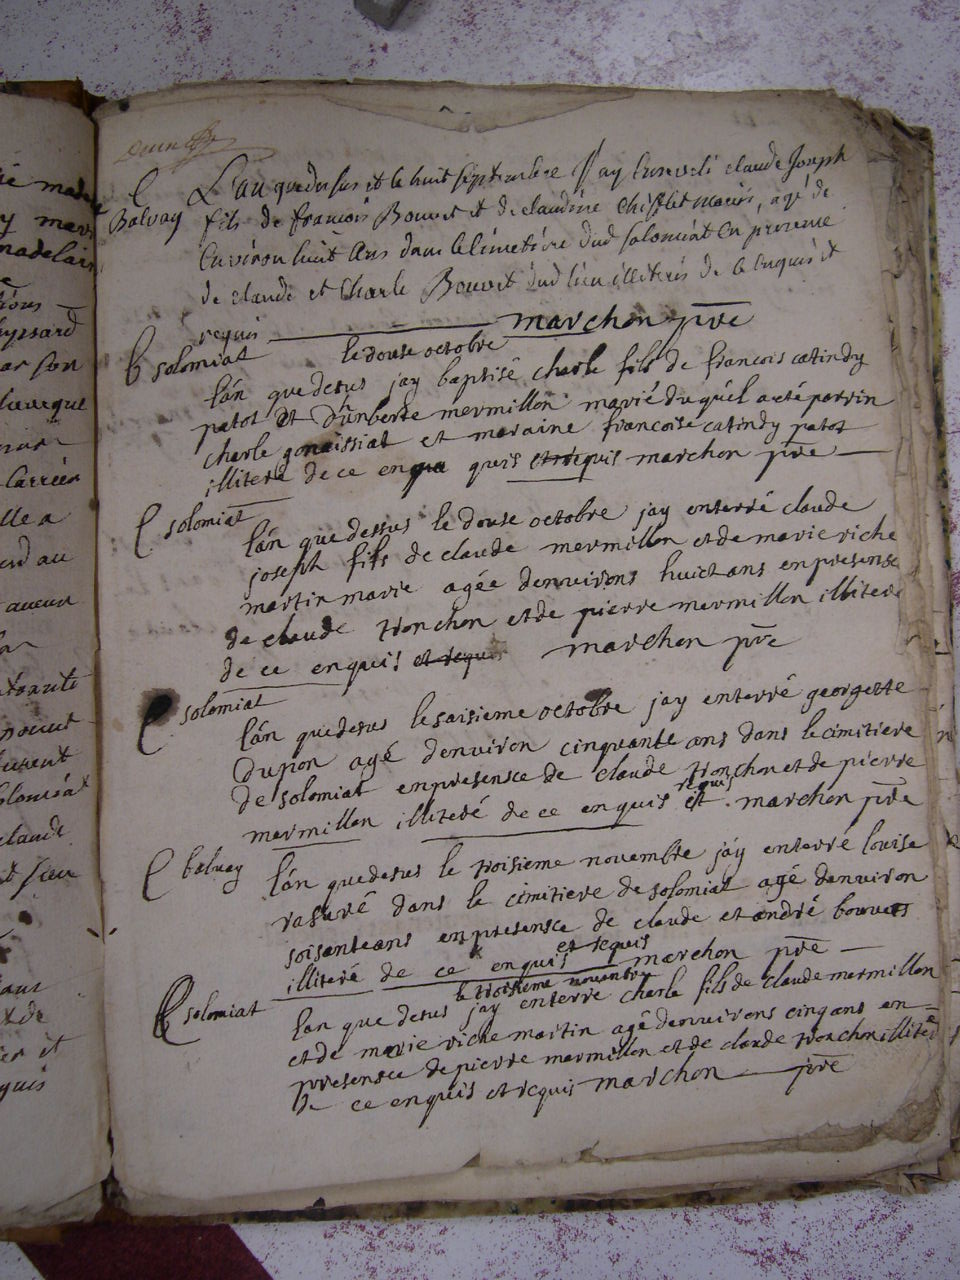 L'an que dessus et le huit septembre J'ay enseveli claude Joseph
Balvay fils de francois Bouvet et de claudine Chifflet mariés, agé de
Environ huit Ans dans le Cimetiére dud solomiat En presence
de claude et Charle Bouvet dud lieu illiterés de ce Enquis et
requis marchon pbre
solomiat le douse octobre
lán que desus jay baptisé charle fils de francois catindy
patot Et d'unberde mermillon marié duquél a eté parrin
charle gonaissiat et maraine francoise catindy patot
illiteré de ce en quis et requis marchon pbre
solomiat
lán que dessus le douse octobre jay enterré claude
joseph fils de claude mermillon et de marie riche
martin marie agée denvirons huict ans en presense
de claude tronchon et de pierre mermillon illiteré
de ce en quis et requis marchon pbre
solomiat
lán que desus le saisieme octobre jay enterré georgette
dupon agé denviron cinquante ans dans le cimitiere
de solomiat en presensce de claude tronchon et de pierre
mermillon illiteré de ce en quis et requis marchon pbre
balvay lán que desus le troisieme novembre jay enterré louise
rasuré dans le cimitiere de solomiat agé denviron
soisante ans en presensce de claude et andré bouvet
illiteré de ce en quis et requis marchon pbre
solomiat le troisieme novembre
lan que desus jay enterré charle fils de claude mermillon
et de marie riche martin agé denvirons cinq ans en
presensce de pierre mermillon et de claude tronchon illiteré
de ce en quis et requis marchon pbre